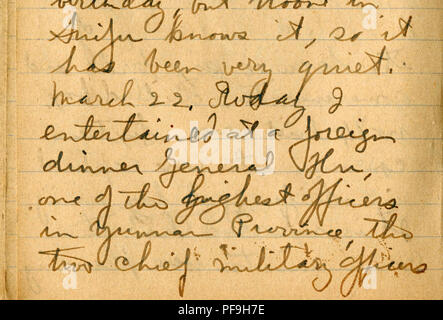 birthday, but noone in
Suifu knows it, so it
has been very quiet.
March 22. Today I
entertained at a foreign
dinner General Hu,
one of the highest officers
in Yunnan Province, the
two chief military officers
alamy
PF9H7E